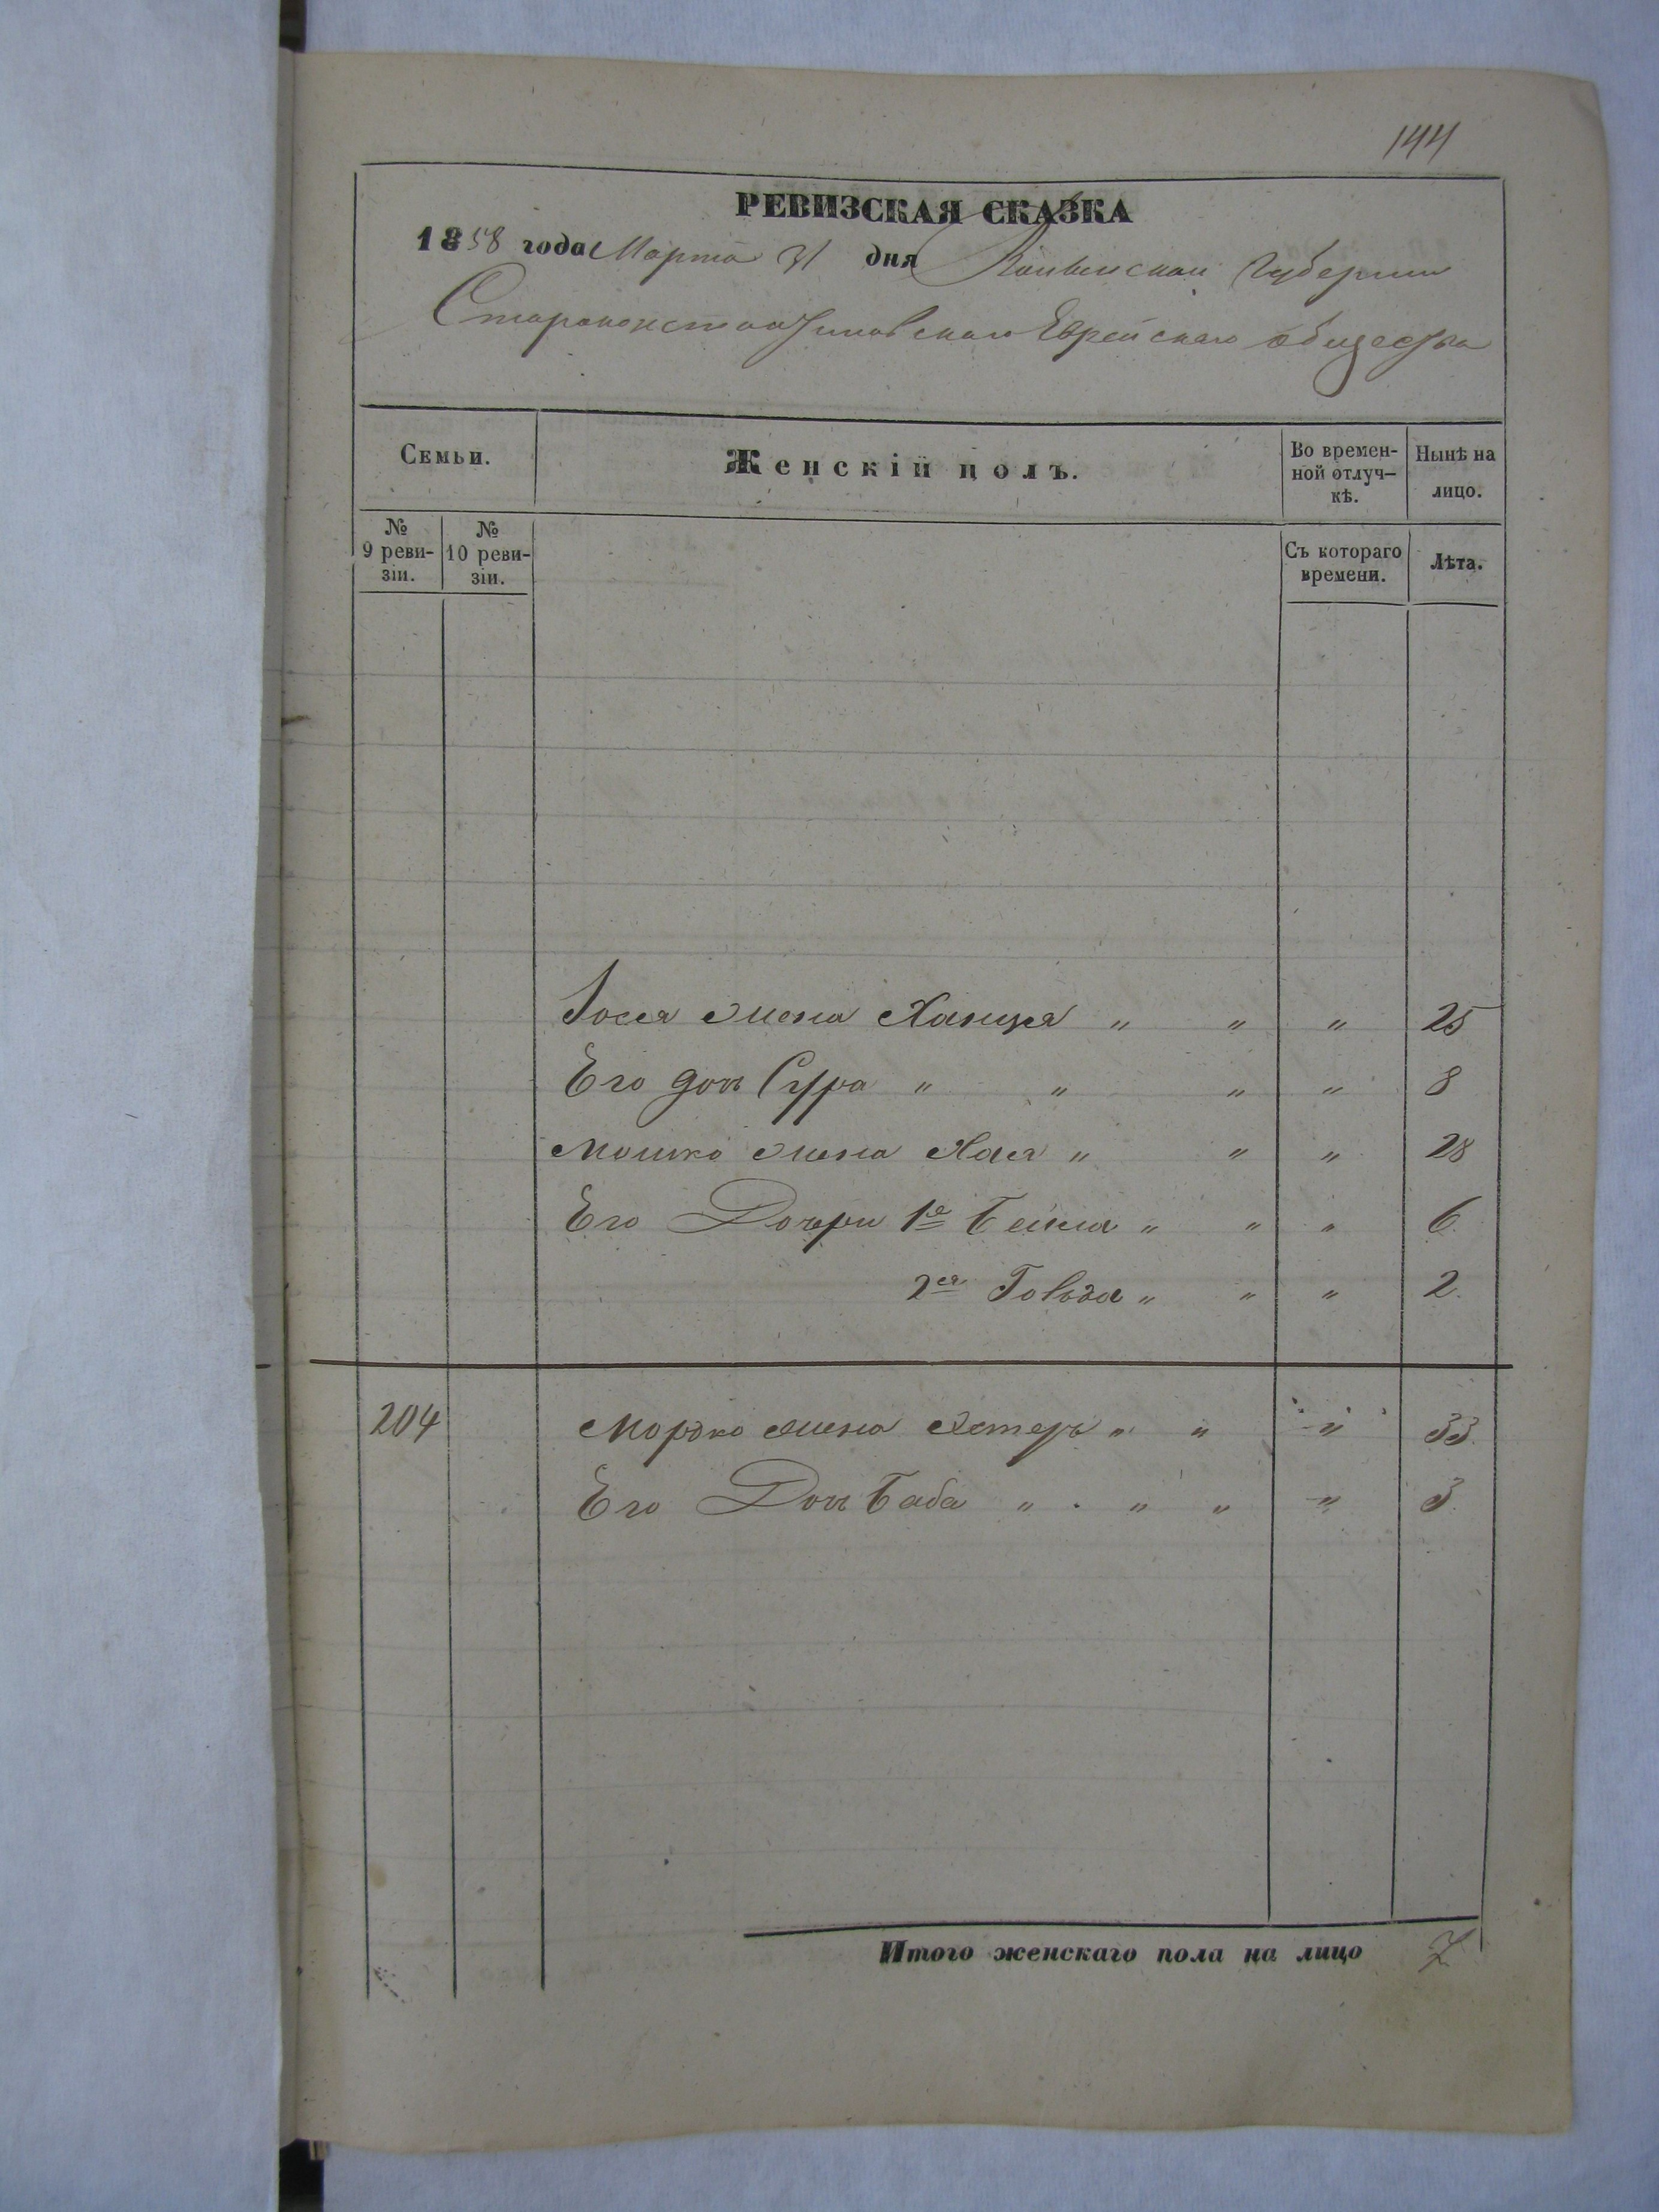 144
РЕВИЗСКАЯ СКАЗКА
1858 года Марта 31 дня Волынской Губернии
Староконстантиновскаго Еврейскаго общества
Семьи.
Женскій полъ.
Во времен-
ной отлуч-
кѣ.
Нынѣ на
лицо.
№
9 реви-
зіи.
№
10 реви-
зіи.
Съ котораго
времени.
Лѣта.
Іося жена Ханця " " " 25
Его дочь Сура " " " " 8
Мошко жена Хая " " " 28
Его Дочери 1я Бейла " " " 6
2я Гольда " " " 2.
204 Мордко жена Эстеръ " " " 33.
Его Дочь Баба " " " " 3.
Итого женскаго пола на лицо 7